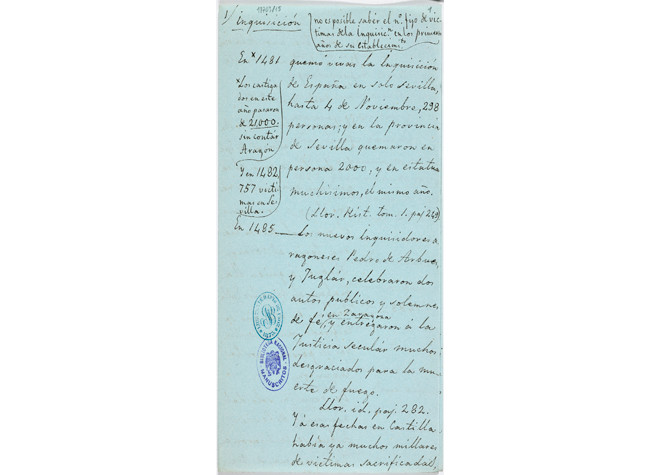 1/ Inquisición
no es posible saber el n.º fijo de vic-
timas de la Inquisic.n en los primeros
años de su establecim.to
En x 1481 quemó vivas la Inquisición
de España en solo Sevilla,
hasta 4 de Noviembre, 298
personas; y en la provincia
de Sevilla quemaron en
persona 2000, y en estatua
muchisimos, el mismo año.
(Llor. Hist. tom. 1. paj 249)
x Los castiga
dos en este
año pasaron
de 21000.
sin contar
Aragón
Y en 1482
757 victi
mas en Se
villa.
En 1485 — Los nuevos inquisidores a
ragoneses Pedro de Arbues,
y Juglár, celebraron dos
autos publicos y solemnes
de fe, en Zaragoza y entregaron á la
Justicia seculár muchos
desgraciados para la mu
erte de fuego.
Llor. id. paj. 282.
Y á esas fechas en Castilla
habia ya muchos millares
de victimas sacrificadas.
BIBLIOTECA NACIONAL
MANUSCRITOS